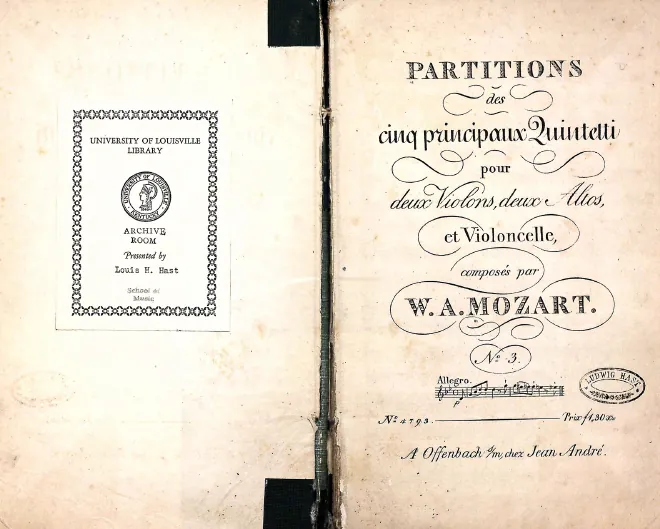 UNIVERSITY OF LOUISVILLE
LIBRARY
UNIVERSITY OF LOUISVILLE
KENTUCKY
ARCHIVE
ROOM
Presented by
Louis H. Hast
School of
Music
PARTITIONS
des
cinq principaux Quintetti
pour
deux Violons, deux Altos,
et Violoncelle,
composés par
W. A. MOZART.
No. 3.
Allegro.
p
LUDWIG HAST
No. 4793.
Prix f 1,30 xr.
A Offenbach s/m, chez Jean André.